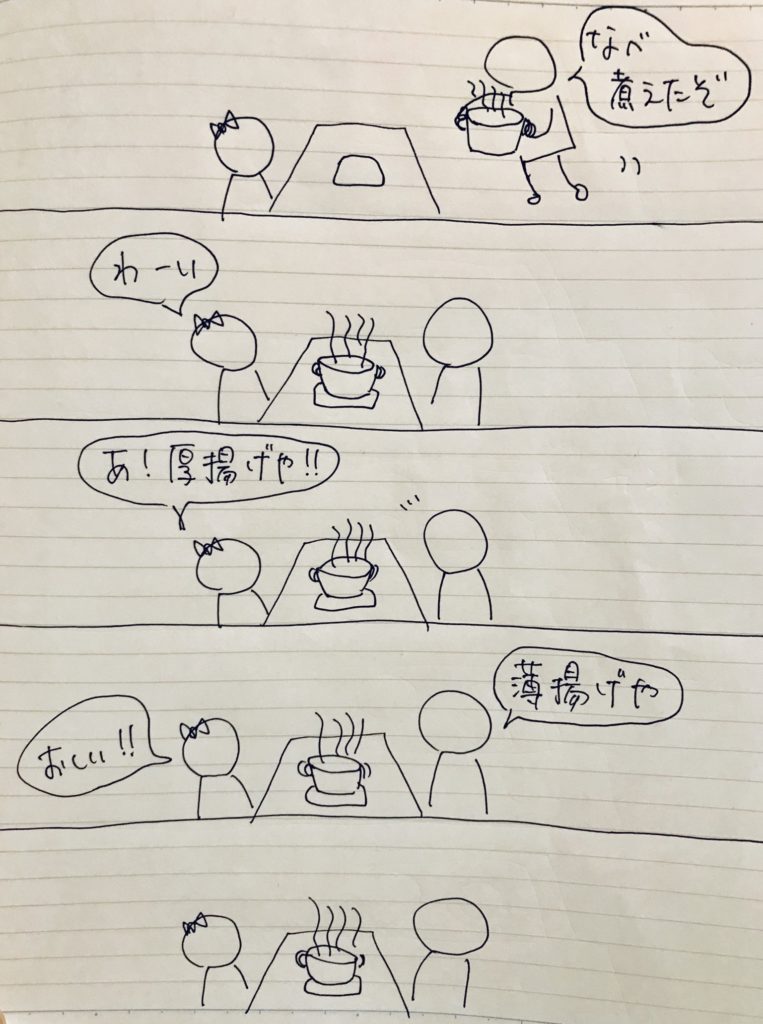 なべ
煮えたぞ
わーい
あ！厚揚げや!!
薄揚げや
おしい!!